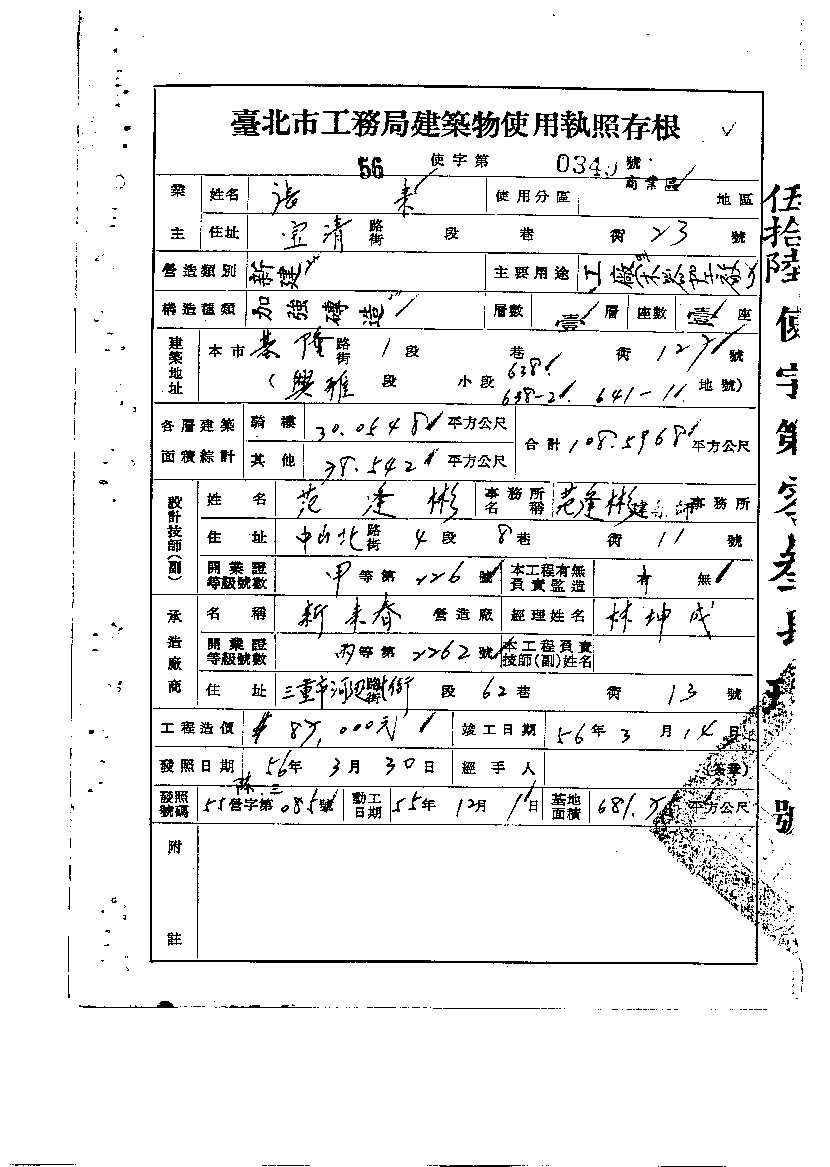 臺北市工務局建築物使用執照存根
56 使字第 034 號
業主 姓名 張 來 使用分區 商業區 地區
住址 宝清 路街 段 巷 衖 23 號
營造類別 新建 主要用途 工廠
構造種類 加強磚造 層數 壹 層 座數 座
建築地址 本市 基隆 路街 1 段 巷 衖 127 號
(興雅 段 小段 638 638-2 641-11 地號)
各層建築面積綜計 騎樓 30.0548 平方公尺 合計 108.5968 平方公尺
其他 78.542 平方公尺
設計技師(副) 姓名 范逢彬 事務所名稱 范逢彬建 師 事務所
住址 中山北 路街 4 段 8 巷 衖 11 號
開業證等級號數 甲 等第 226 號 本工程有無負責監造 有 無
承造廠商 名稱 新來春 營造廠 經理姓名 林坤成
開業證等級號數 丙 等第 2262 號 本工程負責技師(副)姓名
住址 三重市河边北街 路街 段 62 巷 衖 13 號
工程造價 $ 85,000元 竣工日期 56 年 3 月 14 日
發照日期 56 年 3 月 30 日 經手人 (簽章)
發照號碼 55 營字第 085 號 動工日期 55 年 12 月 1 日 基地面積 681. 平方公尺
附註
伍拾陸使字第零叁 號